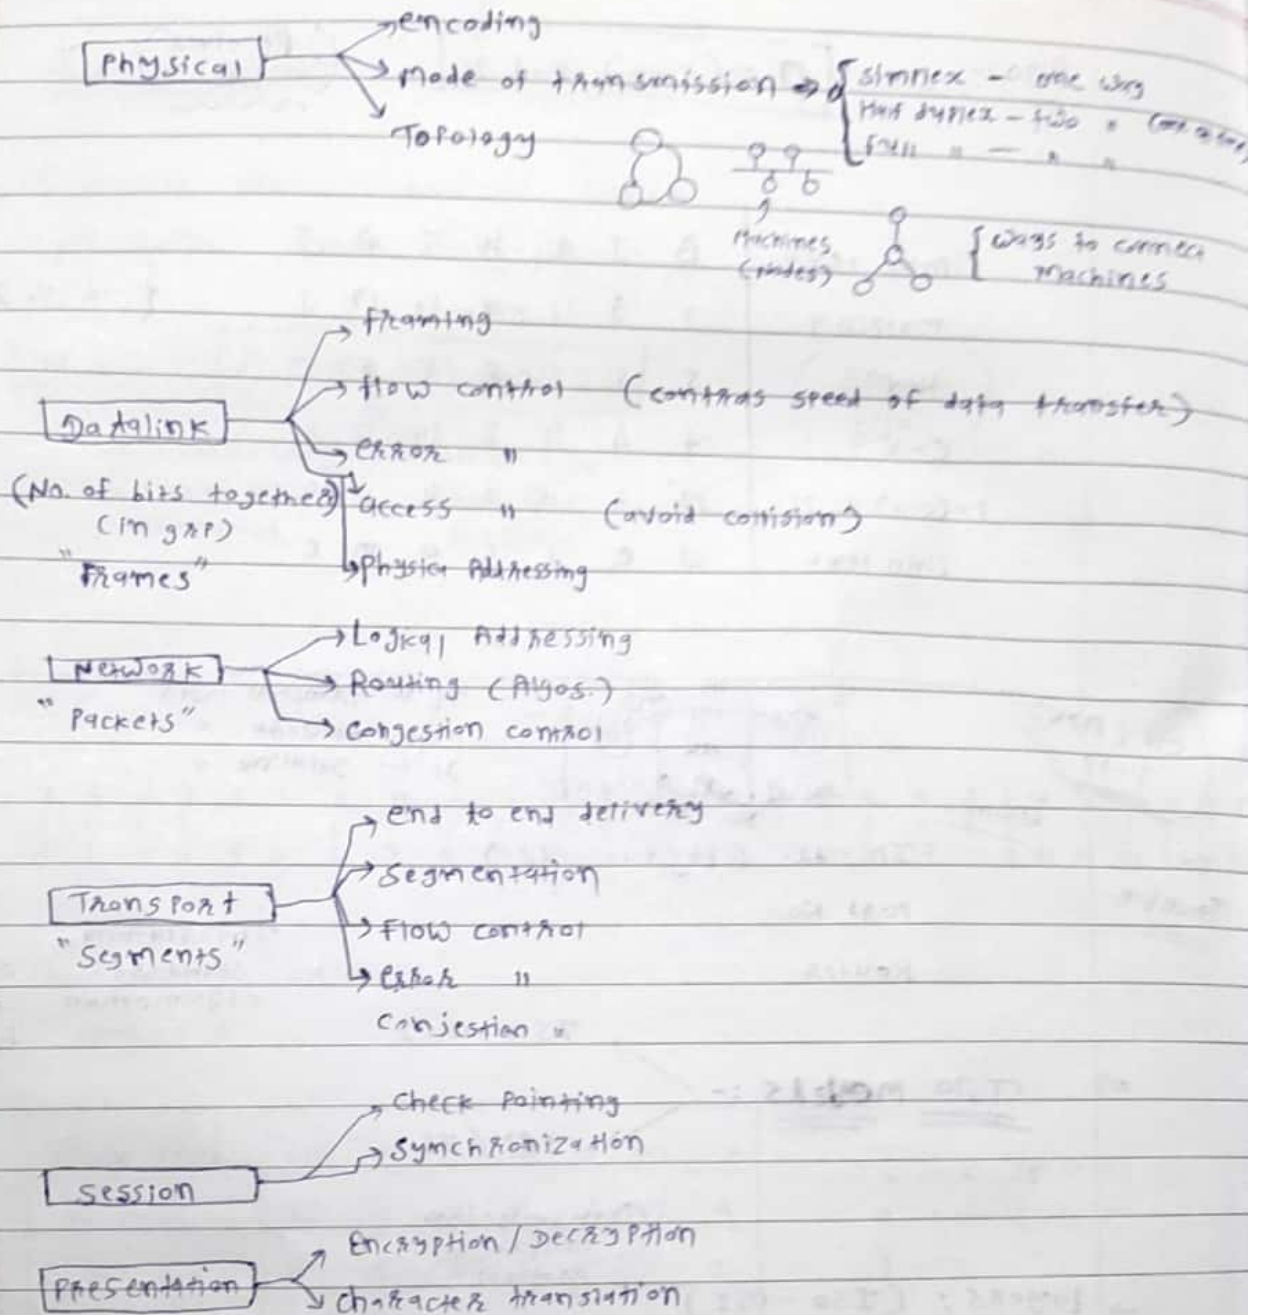 Physical
encoding
Mode of transmission
simplex - one way
Half duplex - two " (one at time)
Full " - " "
Topology
Machines
(nodes)
Ways to connect
Machines
Datalink
(No. of bits together)
(in grp)
"Frames"
framing
flow control (controls speed of data transfer)
error "
access " (avoid collision)
Physical Addressing
Network
"Packets"
Logical Addressing
Routing (Algos.)
Congestion control
Transport
"Segments"
end to end delivery
Segmentation
Flow control
error "
Conjestion "
Session
Check Pointing
Synchronization
Presentation
Encryption / Decryption
character translation